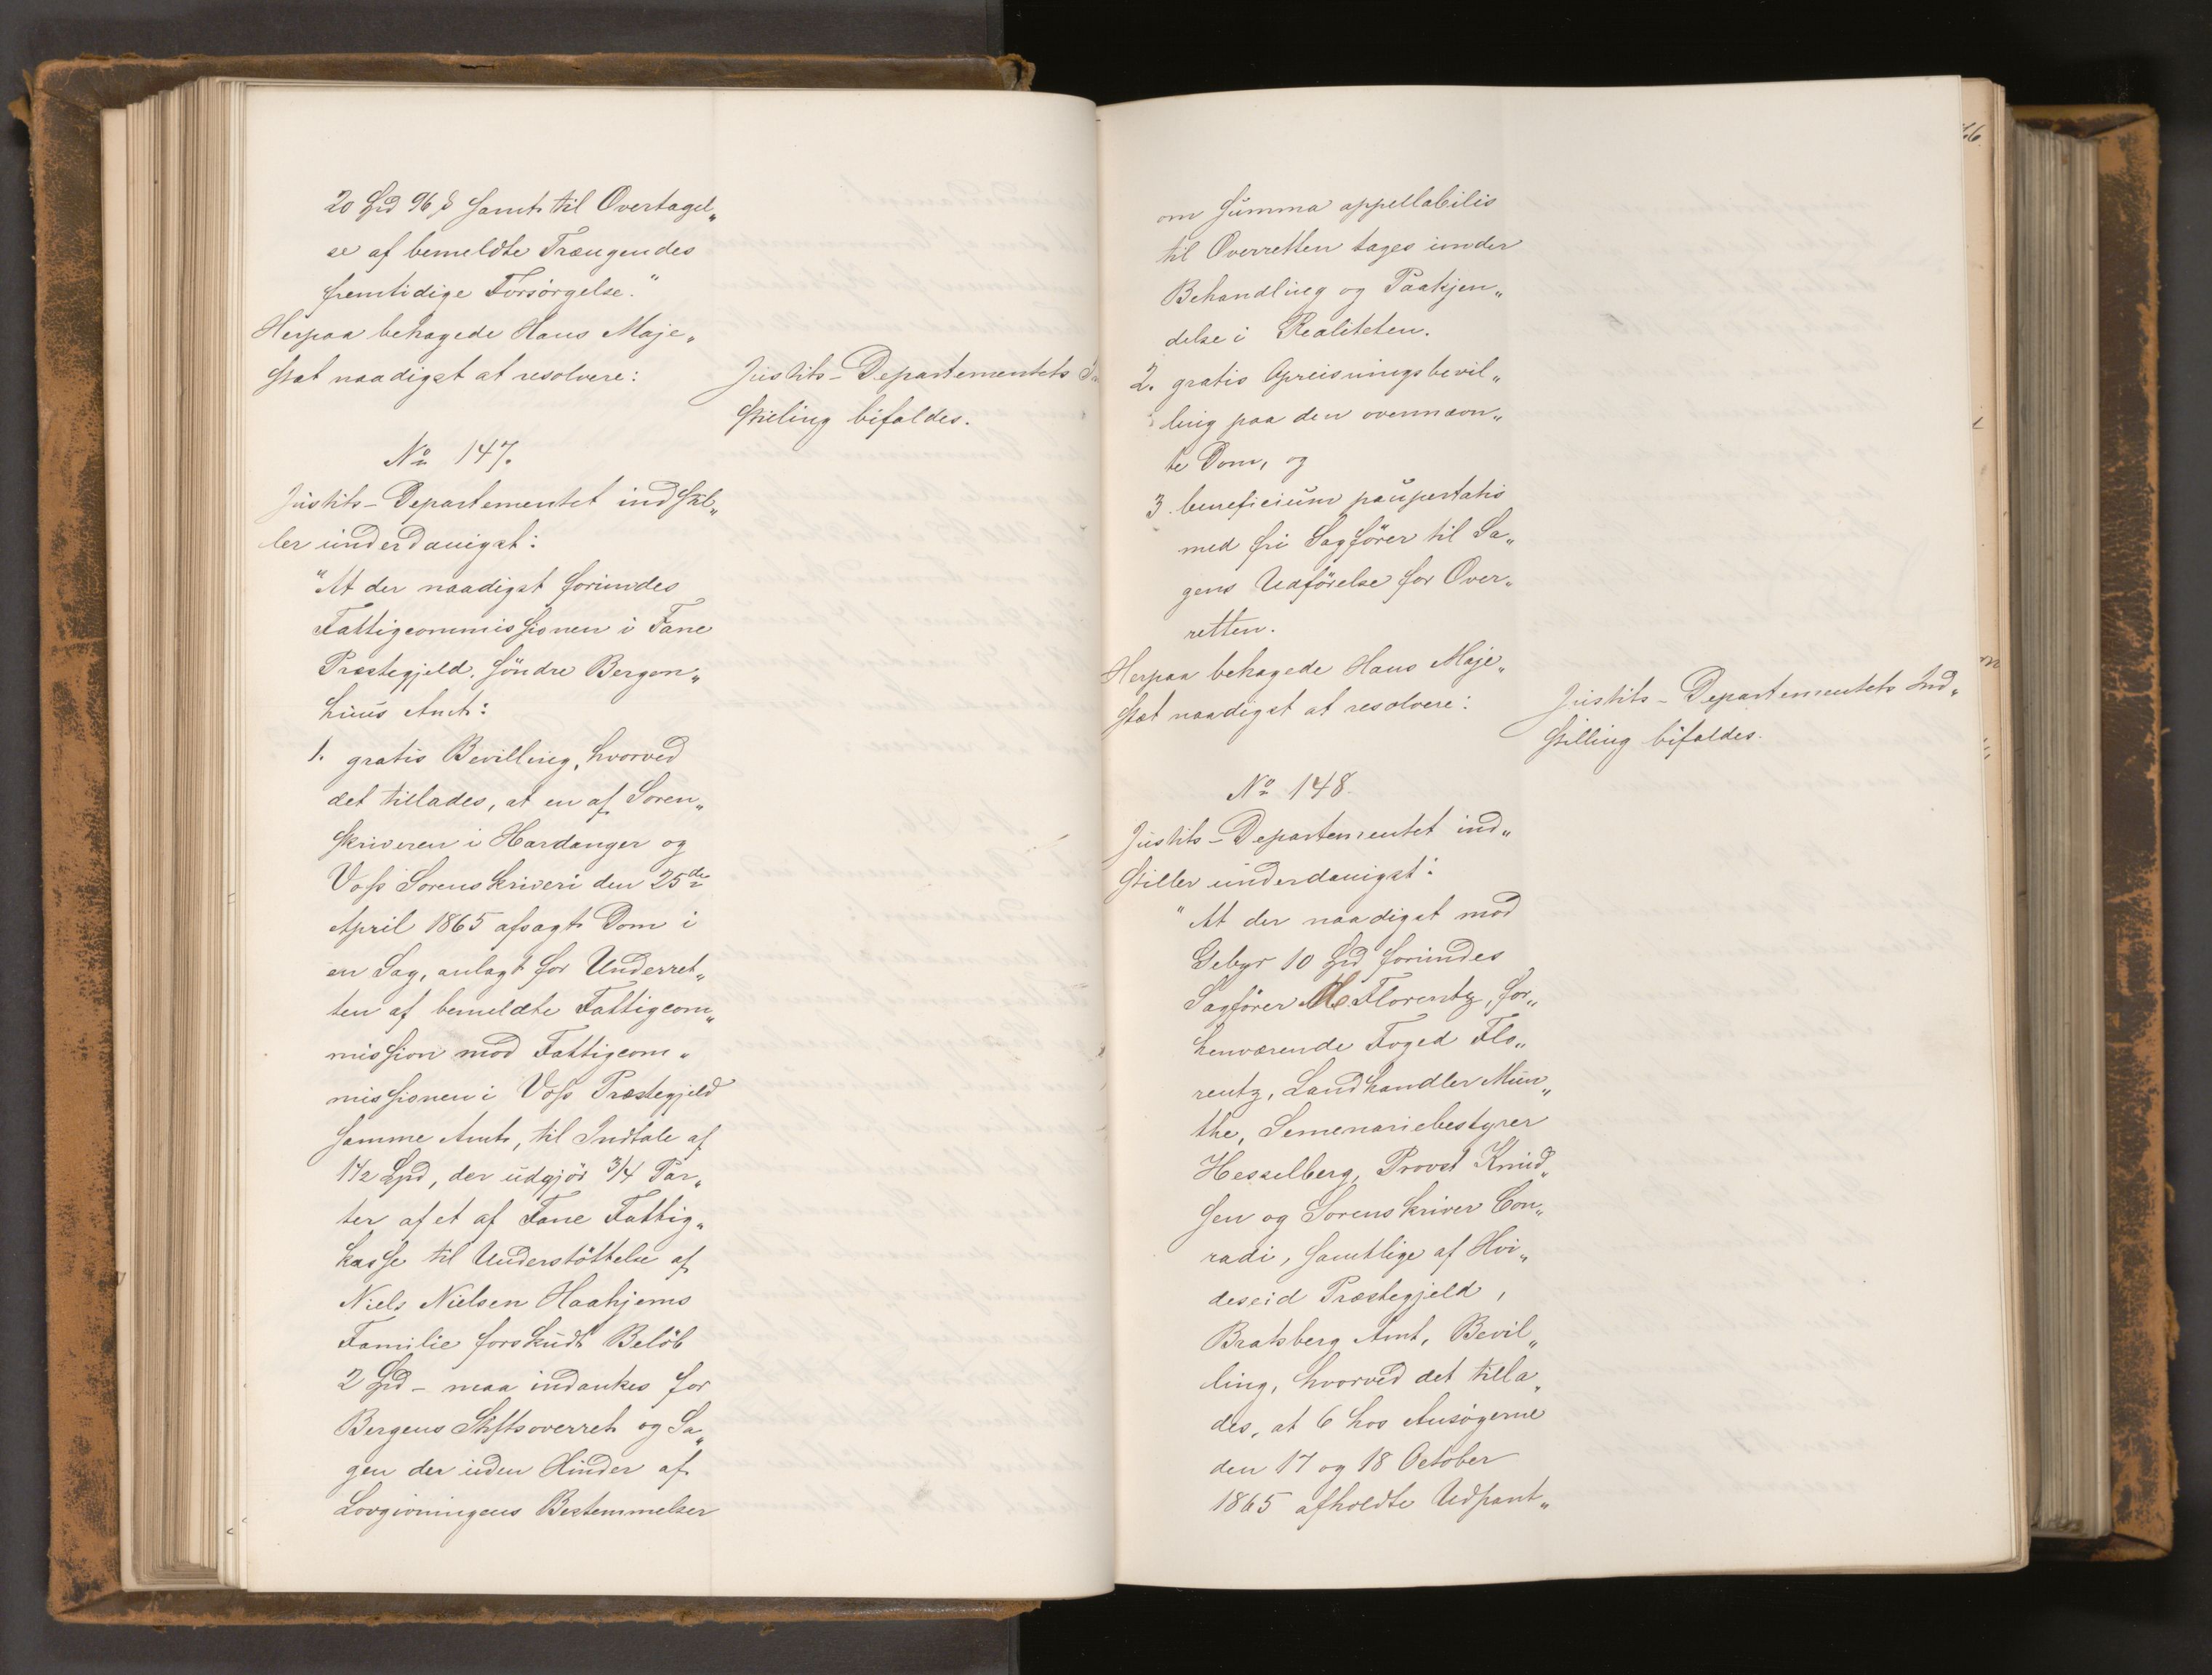 20 Spd 96 ß samt til Overtagel„
se af bemeldte Trængendes
fremtidige Forsörgelse."
Herpaa behagede Hans Maje„
stæt naadigst at resolvere:
Justits-Departementets In
stilling bifaldes.
No 147.
Justits-Departementet indstil„
ler underdanigst:
"At der naadigst forundes
Fattigcommissionen i Fane
Præstegjeld, söndre Bergen„
huus Amt:
1. gratis Bevilling, hvorved
det tillades, at en af Soren„
skriveren i Hardanger og
Voss Sorenskriveri den 25de
April 1865 afsagt Dom i
en Sag, anlagt for Underret„
ten af bemeldte Fattigcom„
mission mod Fattigcom„
missionen i Voss Præstegjeld
samme Amt, til Indtale af
1 1/2 Spd, der udgjör 3/4 Par„
ter af et af Fane Fattig„
kasse til Understöttelse af
Niels Nielsen Haahjems
Familie forskudt Belöb
2 Spd - maa indankes for
Bergens Stiftsoverret og Sa„
gen der uden Hinder af
Lovgivningens Bestemmelser
om summa appellabilis
til Overretten tages under
Behandling og Paakjen„
delse i Realiteten.
2. gratis Opreisningsbevil„
ling paa den ovennævn„
te Dom, og
3. beneficium paupertatis
med fri Sagförer til Sa„
gens Udförelse for Over„
retten.
Herpaa behagede Hans Maje„
stæt naadigst at resolvere:
Justits-Departementets Ind„
stilling bifaldes.
No 148.
Justits-Departementet ind„
stiller underdanigst:
"At der naadigst mod
Gebyr 10 Spd forundes
Sagförer Florentz, for„
henværende Foged Flo„
rentz, Landhandler Mun„
the, Semenariebestyrer
Hesselberg, Provst Knud„
sen og Sorenskriver Con„
radi, samtlige af Hvi„
deseid Præstegjeld,
Bratsberg Amt, Bevil„
ling, hvorved det tilla„
des, at 6 hos Ansögerne
den 17 og 18 October
1865 afholdte Udpant„